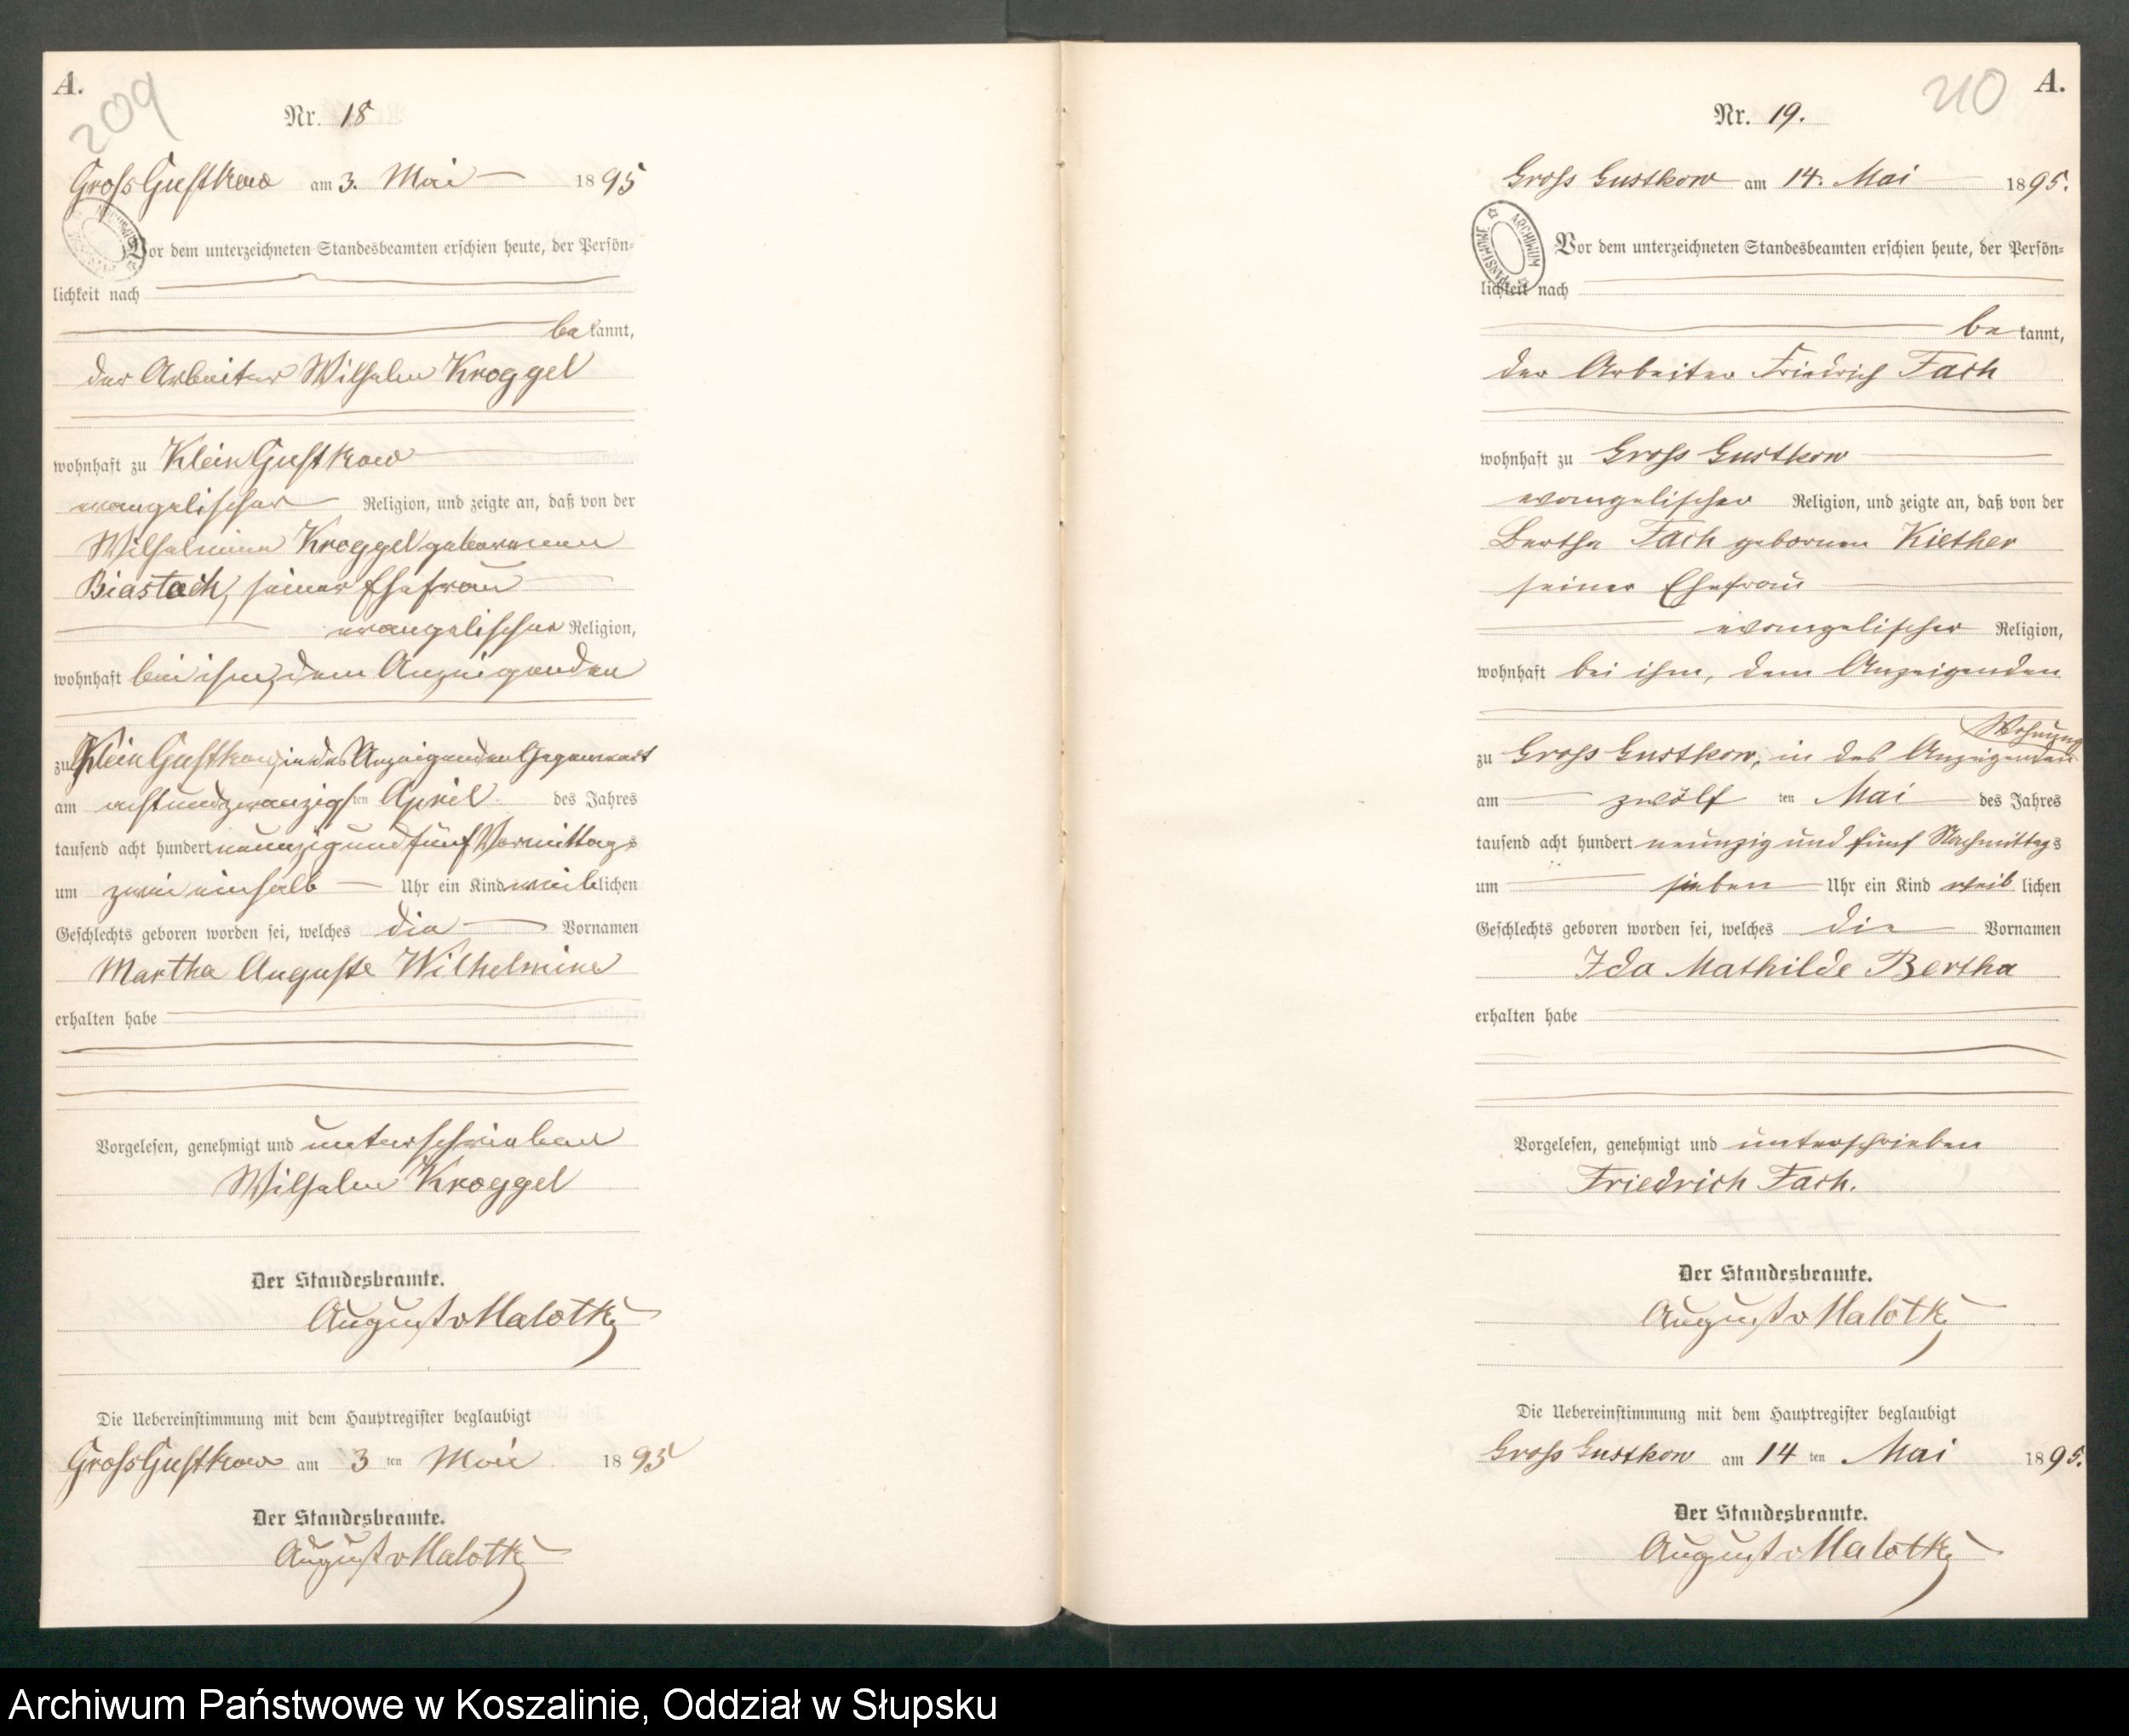 A.
209
Nr. 18
Gross Gustkow am 3. Mai 1895
Vor dem unterzeichneten Standesbeamten erschien heute, der Persön-
lichkeit nach
bekannt,
der Arbeiter Wilhelm Kroggel
wohnhaft zu Klein Gustkow
evangelischer Religion, und zeigte an, daß von der
Wilhelmine Kroggel geborenen
Biastoch, seiner Ehefrau
evangelischer Religion,
wohnhaft bei ihm, dem Anzeigenden
zu Klein Gustkow, in des Anzeigenden Gegenwart
am achtundzwanzigsten April des Jahres
tausend acht hundert neunzig und fünf Vormittags
um zwei einhalb Uhr ein Kind weiblichen
Geschlechts geboren worden sei, welches die Vornamen
Martha Auguste Wilhelmine
erhalten habe
Vorgelesen, genehmigt und unterschrieben
Wilhelm Kroggel
Der Standesbeamte.
August v Malottky
Die Uebereinstimmung mit dem Hauptregister beglaubigt
Gross Gustkow am 3 ten Mai 1895
Der Standesbeamte.
August v Malottky
210
A.
Nr. 19.
Gross Gustkow am 14. Mai 1895.
ARCHIWUM PAŃSTWOWE
Vor dem unterzeichneten Standesbeamten erschien heute, der Persön-
lichkeit nach
bekannt,
der Arbeiter Friedrich Fach
wohnhaft zu Gross Gustkow
evangelischer Religion, und zeigte an, daß von der
Bertha Fach geborenen Kiether
seiner Ehefrau
evangelischer Religion,
wohnhaft bei ihm, dem Anzeigenden
Wohnung
zu Gross Gustkow, in des Anzeigenden
am zwölf ten Mai des Jahres
tausend acht hundert neunzig und fünf Nachmittags
um sieben Uhr ein Kind weiblichen
Geschlechts geboren worden sei, welches die Vornamen
Ida Mathilde Bertha
erhalten habe
Vorgelesen, genehmigt und unterschrieben
Friedrich Fach.
Der Standesbeamte.
August v Malottky
Die Uebereinstimmung mit dem Hauptregister beglaubigt
Gross Gustkow am 14 ten Mai 1895.
Der Standesbeamte.
August v Malottky
Archiwum Państwowe w Koszalinie, Oddział w Słupsku